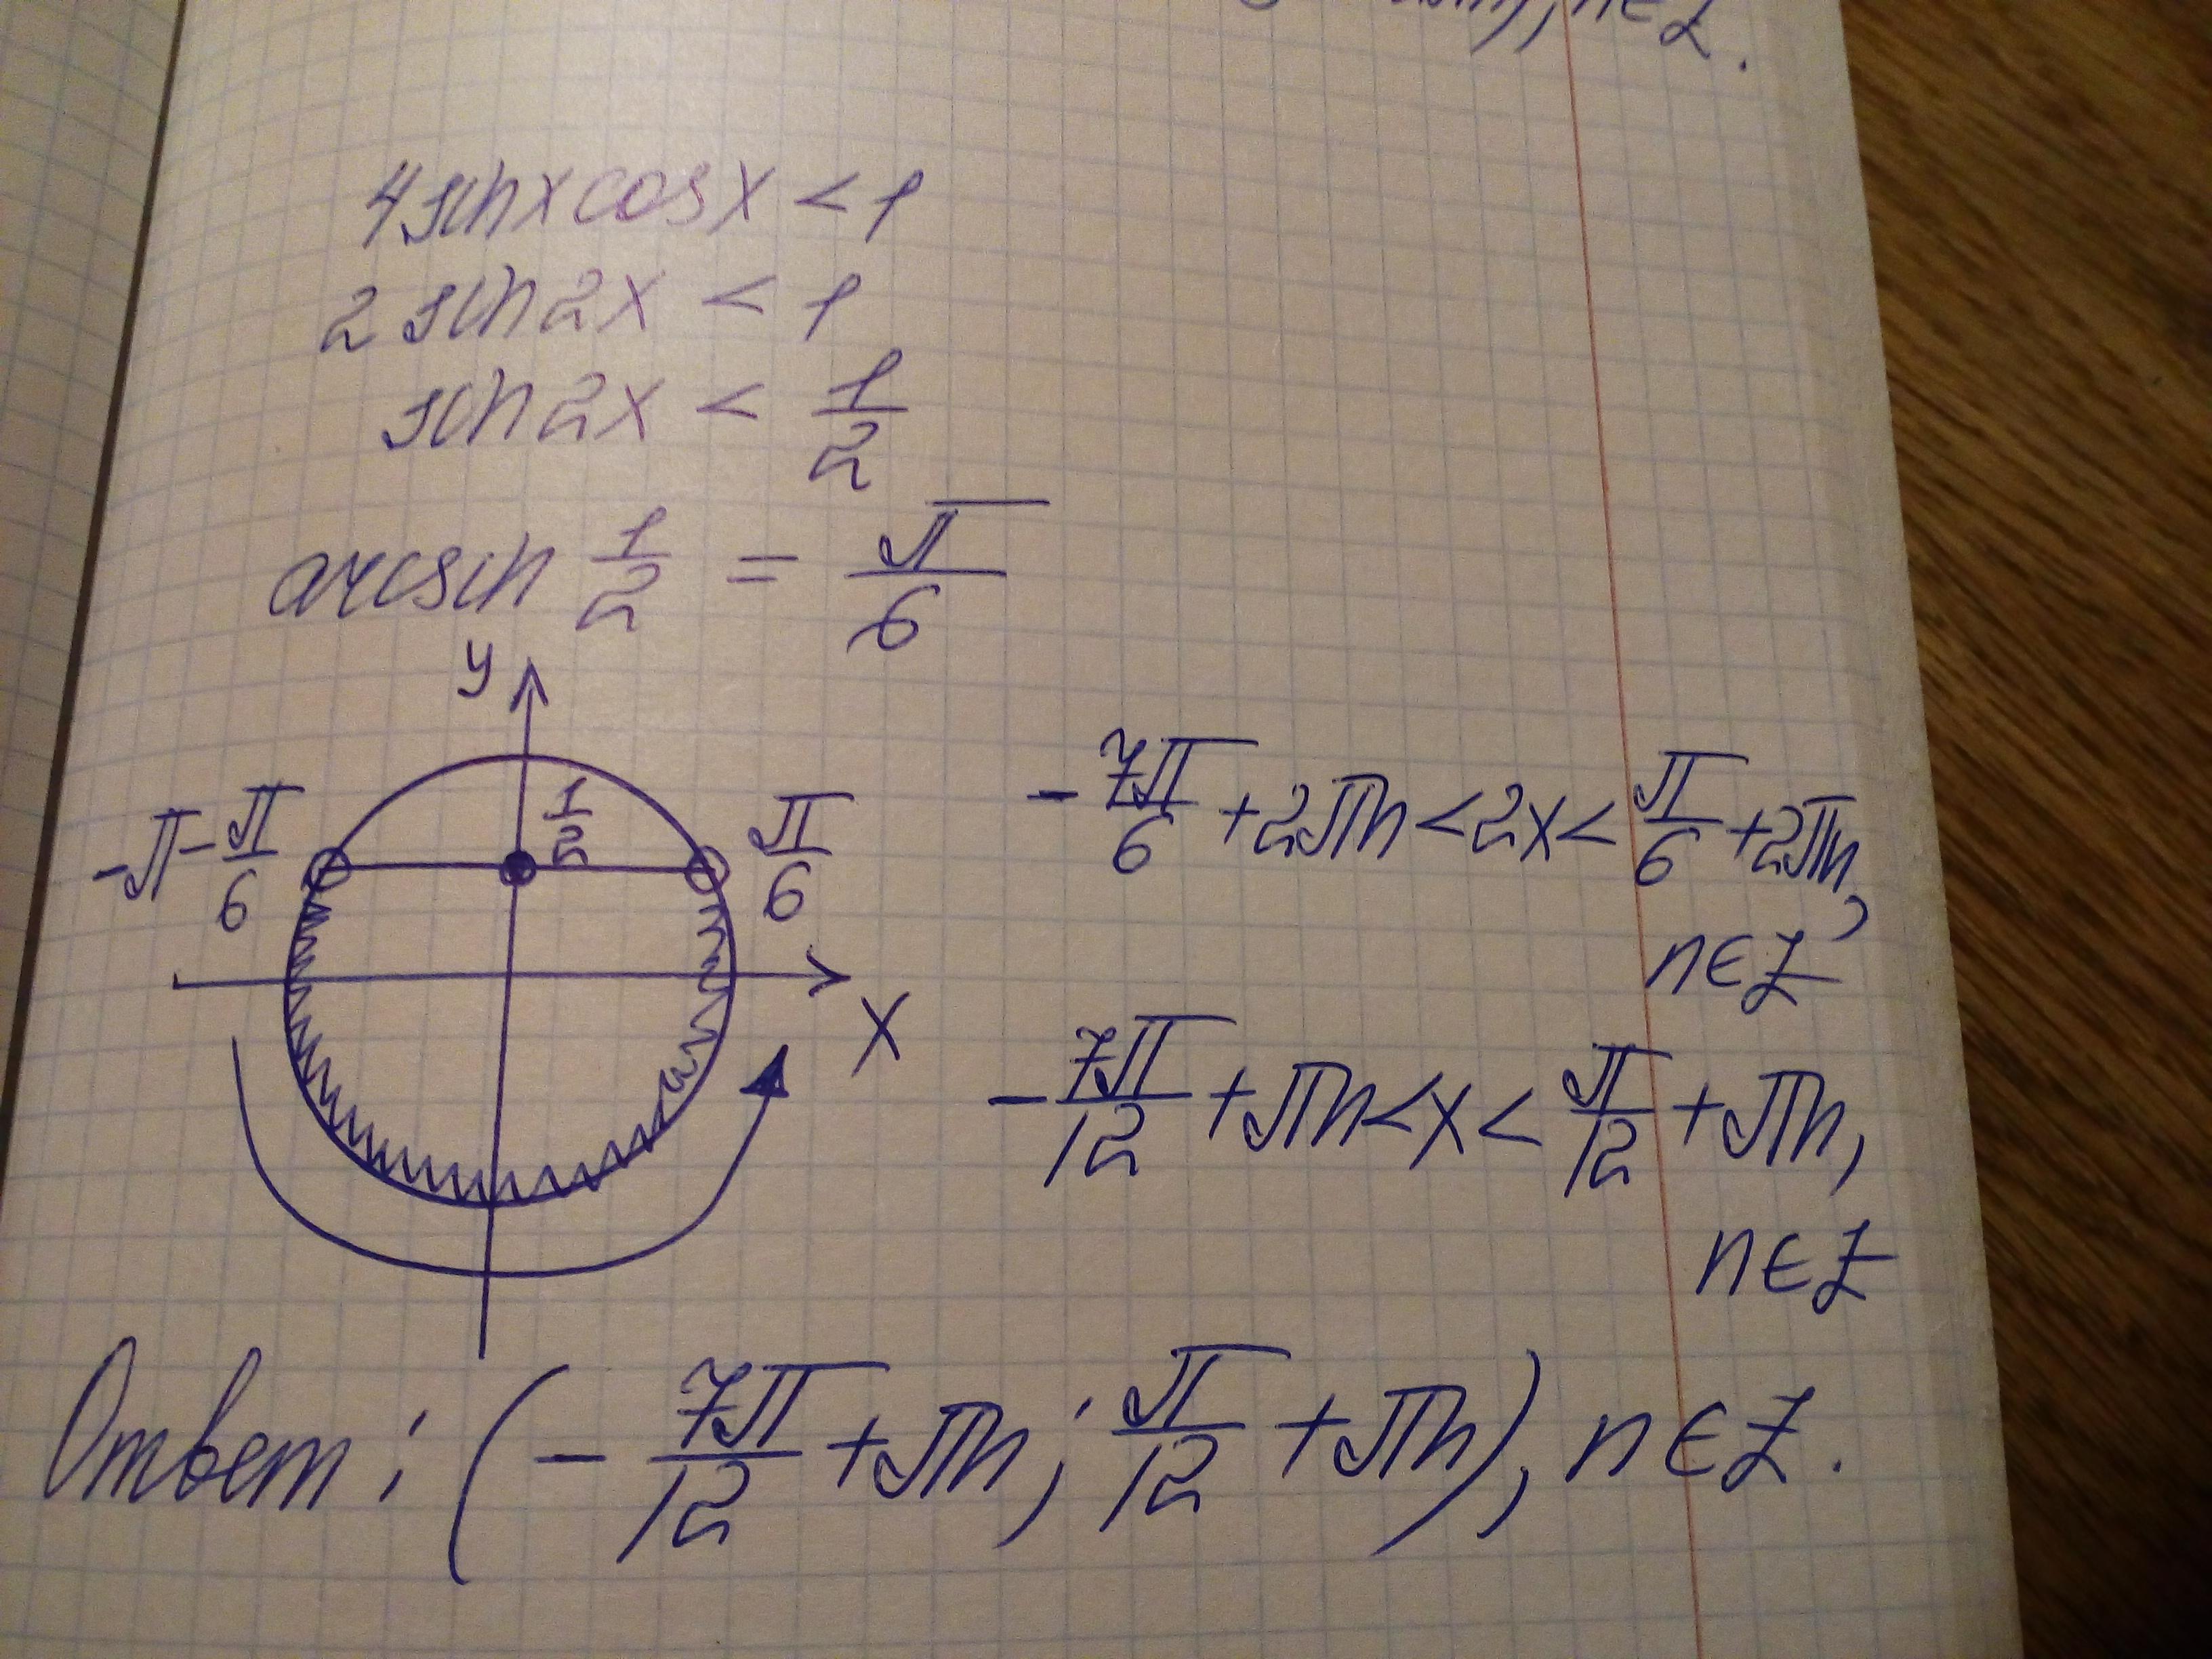 n∈Z.
4sinxcosx < 1
2 sin2x < 1
sin2x < 1/2
arcsin 1/2 = π/6
y
-π-π/6
1/2
π/6
x
-7π/6+2πn<2x<π/6+2πn,
n∈Z
-7π/12+πn<x<π/12+πn,
n∈Z
Ответ: (-7π/12+πn; π/12+πn), n∈Z.